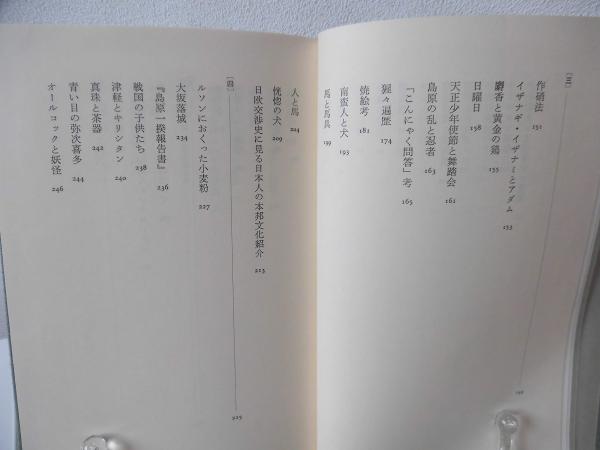 ［三］
作硝法 151
イザナギ・イザナミとアダム 153
麝香と黄金の鶏 155
日曜日 158
天正少年使節と舞踏会 161
島原の乱と忍者 163
「こんにゃく問答」考 165
猩々遍歴 174
焼絵考 181
南蛮人と犬 193
馬と馬具 199
人と馬 204
恍惚の犬 209
日欧交渉史に見る日本人の本邦文化紹介 213
［四］ 225
ルソンにおくった小麦粉 227
大坂落城 234
『島原一揆報告書』 236
戦国の子供たち 238
津軽とキリシタン 240
真珠と茶器 242
青い目の弥次喜多 244
オールコックと妖怪 246